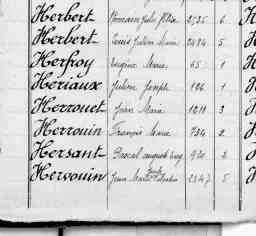 Herbert Romain Jules Félix 2535 6
Herbert Louis Julien Marie 2484 5
Herfroy Eugène Marie 65 1
Hériaux Julien Joseph 126 1
Herrouet Jean Marie 1211 3
Herrouin François Marie 734 2
Hersant Pascal auguste 920 2
Hervouin Jean Marie 2347 5